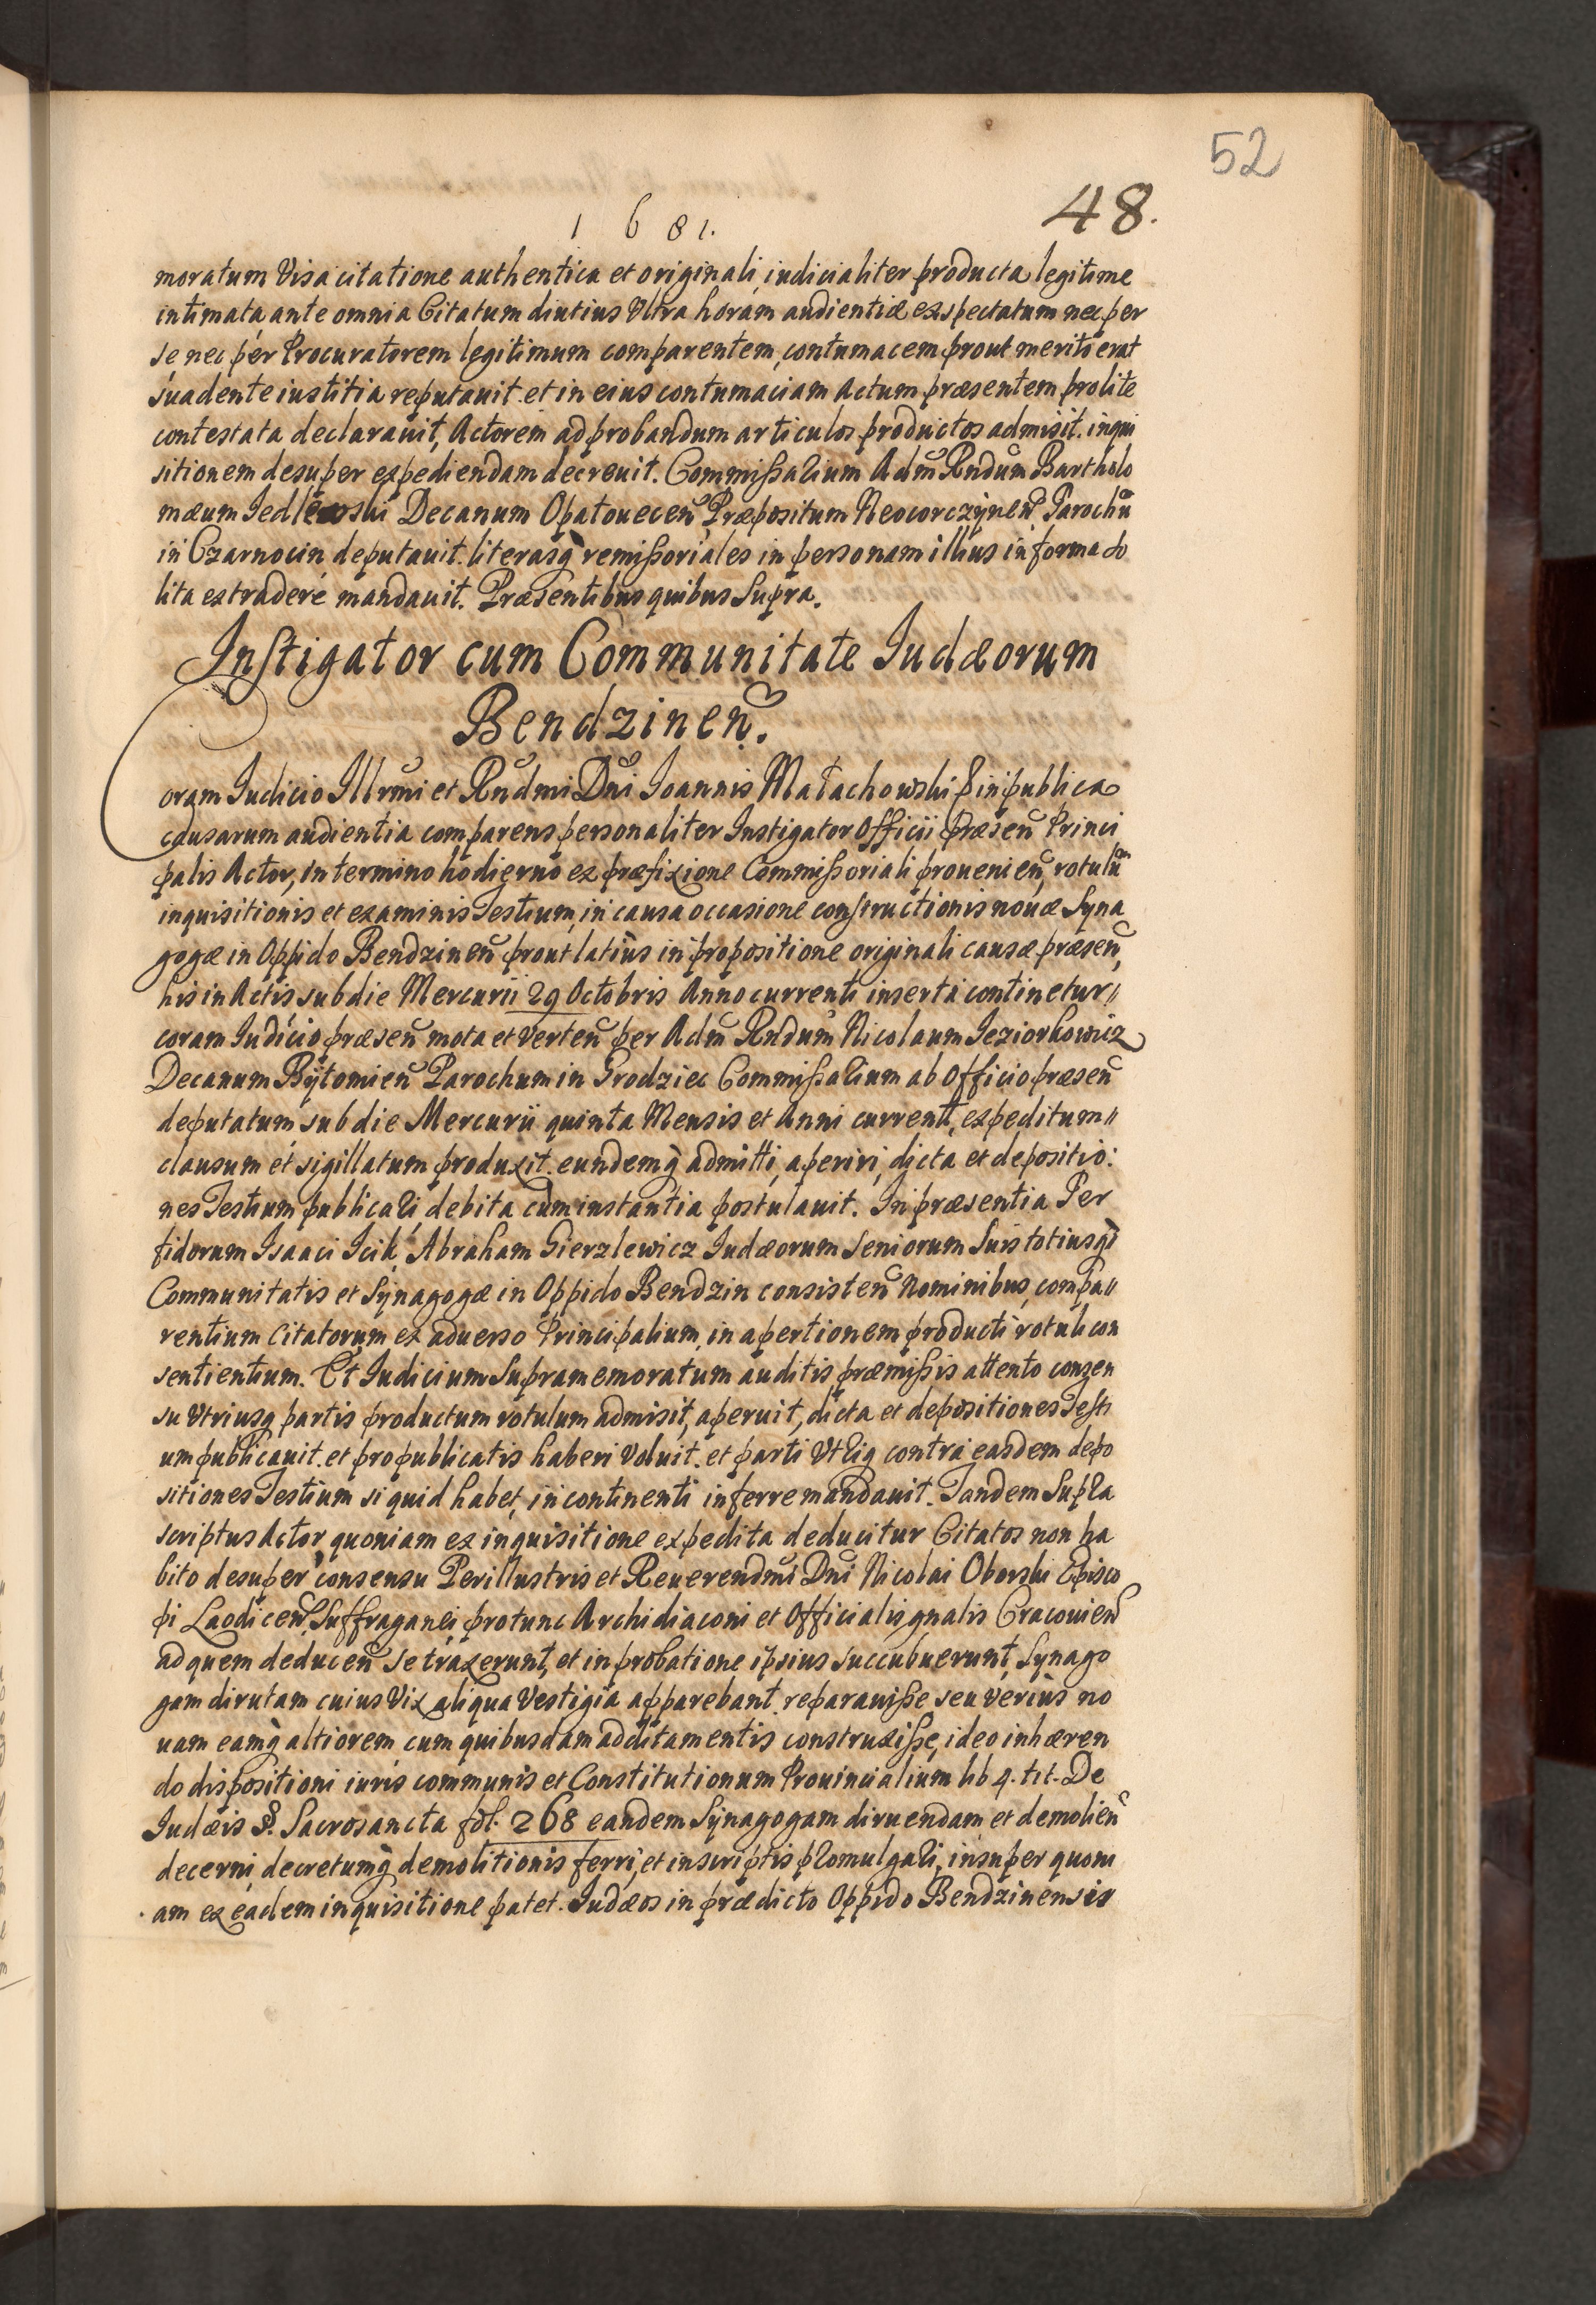 52
48.
1 6 8 1.
moratum Visa citatione authentica et originali, iudicialiter producta legitime
intimata, ante omnia Citatum diutius Vltra horam audientiæ exspectatum nec per
se nec per Procuratorem legitimum comparentem, contumacem prout meriti erat
suadente iustitia reputauit. et in eius contumaciam Actum præsentem pro lite
contestata declarauit, Actorem ad probandum articulos productos admisit. inqui
sitionem desuper expediendam decreuit. Commißarium Adm̃ Rndum Bartholo
mæum Jedlewski Decanum Opatouecen̄ Præpositum Neocorczÿnen̄, Parochũ
in Czarnocin deputauit. literasq̀ remißoriales in personam illius in forma so
lita extradere mandauit. Præsentibus quibus Supra.
Instigator cum Communitate Iudæorum
Bendzinen̄.
Coram Iudicio Illrm̃i et Rndmi Dñi Ioannis Małachowski P in publica
causarum audientia comparens personaliter Instigator Officii Præsen̄ Princi
palis Actor, in termino hodierno ex præfixione Commißoriali prouenien̄, rotulũ
inquisitionis et examinis Testium, in causa occasione constructionis nouæ Syna
gogæ in Oppido Bendzinen̄ prout latiùs in propositione originali causæ præsen̄,
his in Actis sub die Mercurii 29 Octobris Anno currenti inserta continetur//
coram Iudicio præsen̄ mota et verten̄ per Adm̃ Rndum̃ Nicolaum Jeziorkowicz
Decanum Bÿtomien̄ Parochum in Grodziec Commißarium ab Officio præsen̄
deputatum, sub die Mercurii quinta Mensis et Anni current, expeditum//
clausum et sigillatum produxit. eundemq̀ admitti, aperiri, dicta et depositio:
nes Testium publicari, debita cum instantia postulauit. In præsentia Per
fidorum Isaaci Icik, Abraham Gierzlewicz Iudæorum Seniorum Suis totiusq̀
Communitatis et Sÿnagogæ in Oppido Bendzin consisten̄ Nominibus, compa//
rentium Citatorum ex aduerso Principalium, in apertionem producti rotuli con
sentientium. Et Iudicium Supramemoratum auditis præmißis attento consen
su Vtriusq partis productum rotulum admisit, aperuit, dicta et depositiones Testi
um publicauit. et pro publicatis haberi Voluit. et parti Vtriq contra easdem depo
sitiones Testium si quid habet, in continenti inferre mandauit. Tandem Supra
scriptus Actor, quoniam ex inquisitione expedita deducitur Citatos non ha
bito desuper consensu Perillustris et Reuerendm̃i Dñi Nicolai Oborski Episco
pi Laodicen̄, Suffraganei, protunc Archidiaconi et Officialis gnalis Cracouien̄
ad quem deducen̄ se traxerunt, et in probatione ipsius succubuerunt, Sÿnago
gam dirutam cuius Vix aliqua Vestigia apparebant. reparauiße seu veriùs no
uam eamq̀ altiorem, cum quibusdam additamentis construxiße, ideo inhæren
do dispositioni iuris communis et Constitutionum Prouincialium lib 4. tit. De
Iudæis §. Sacrosancta fol. 268 eandem Sÿnagogam diruendam et demolien̄
decerni, decretumq̀ demolitionis ferri, et in scriptis promulgari, insuper quoni
am ex eadem inquisitione patet. Iudæos in prædicto Oppido Bendzinensis